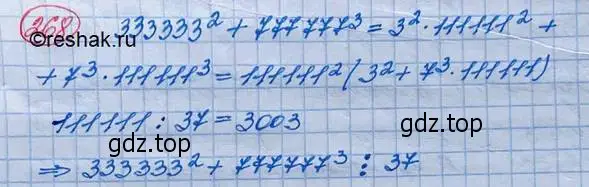 268) 333333² + 777777³ = 3² · 111111² +
©reshak.ru
+ 7³ · 111111³ = 111111² (3² + 7³ · 111111)
111111 : 37 = 3003
gdz.top
gdz.top
⇒ 333333² + 777777³ ⋮ 37